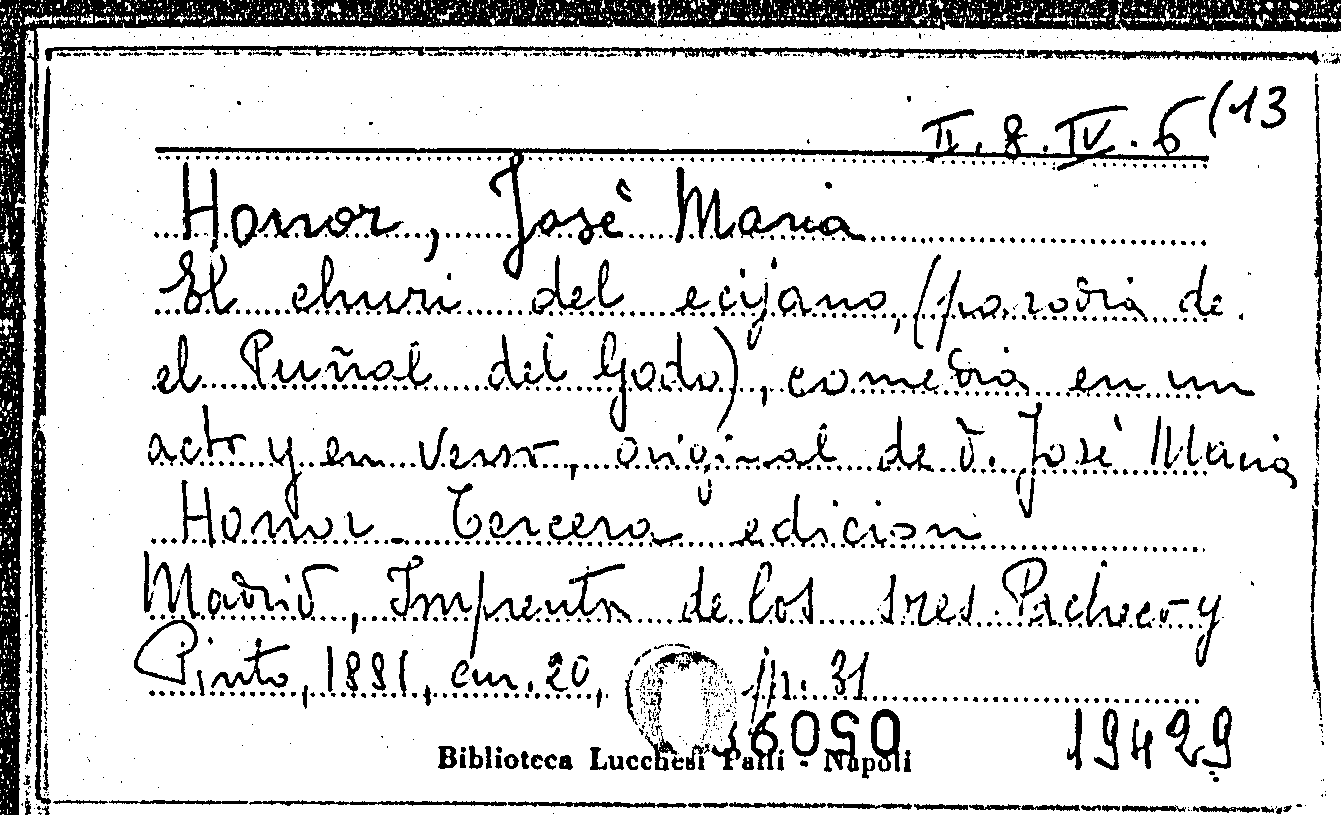 II. 8. IV. 6 (13
Honor, José Maria
El churi del ecijano, (parodia de
el Puñal del Godo), comedia en un
acto y en verso, original de d. José Maria
Honor. Tercera edicion
Madrid, Imprenta de los sres. Pacheco y
Pinto, 1881, cm. 20, p. 31
Biblioteca Lucchesi Palli - Napoli
19429